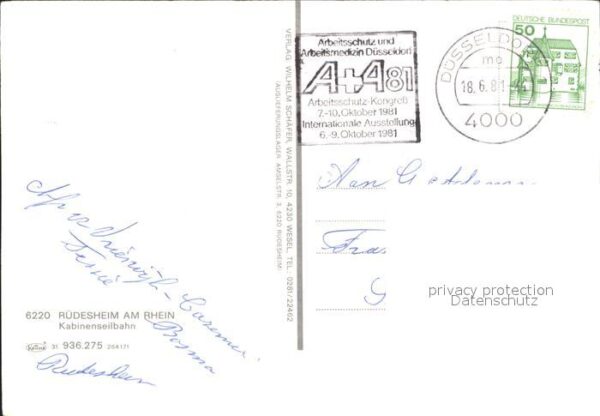 Arbeitsschutz und
Arbeitsmedizin Düsseldorf
A+A 81
Arbeitsschutz-Kongreß
7.-10. Oktober 1981
Internationale Ausstellung
6.-9. Oktober 1981
DÜSSELDO
mo
18.6.81
4000
DEUTSCHE BUNDESPOST
50
VERLAG WILHELM SCHÄFER, WALLSTR. 10, 4230 WESEL, TEL. 0281/22462
(AUSLIEFERUNGSLAGER: AMSELSTR. 3, 6220 RÜDESHEIM)
Aan
Fra
G
privacy protection
Datenschutz
Bosma
Rüdesheim
6220 RÜDESHEIM AM RHEIN
Kabinenseilbahn
31 936.275 254171